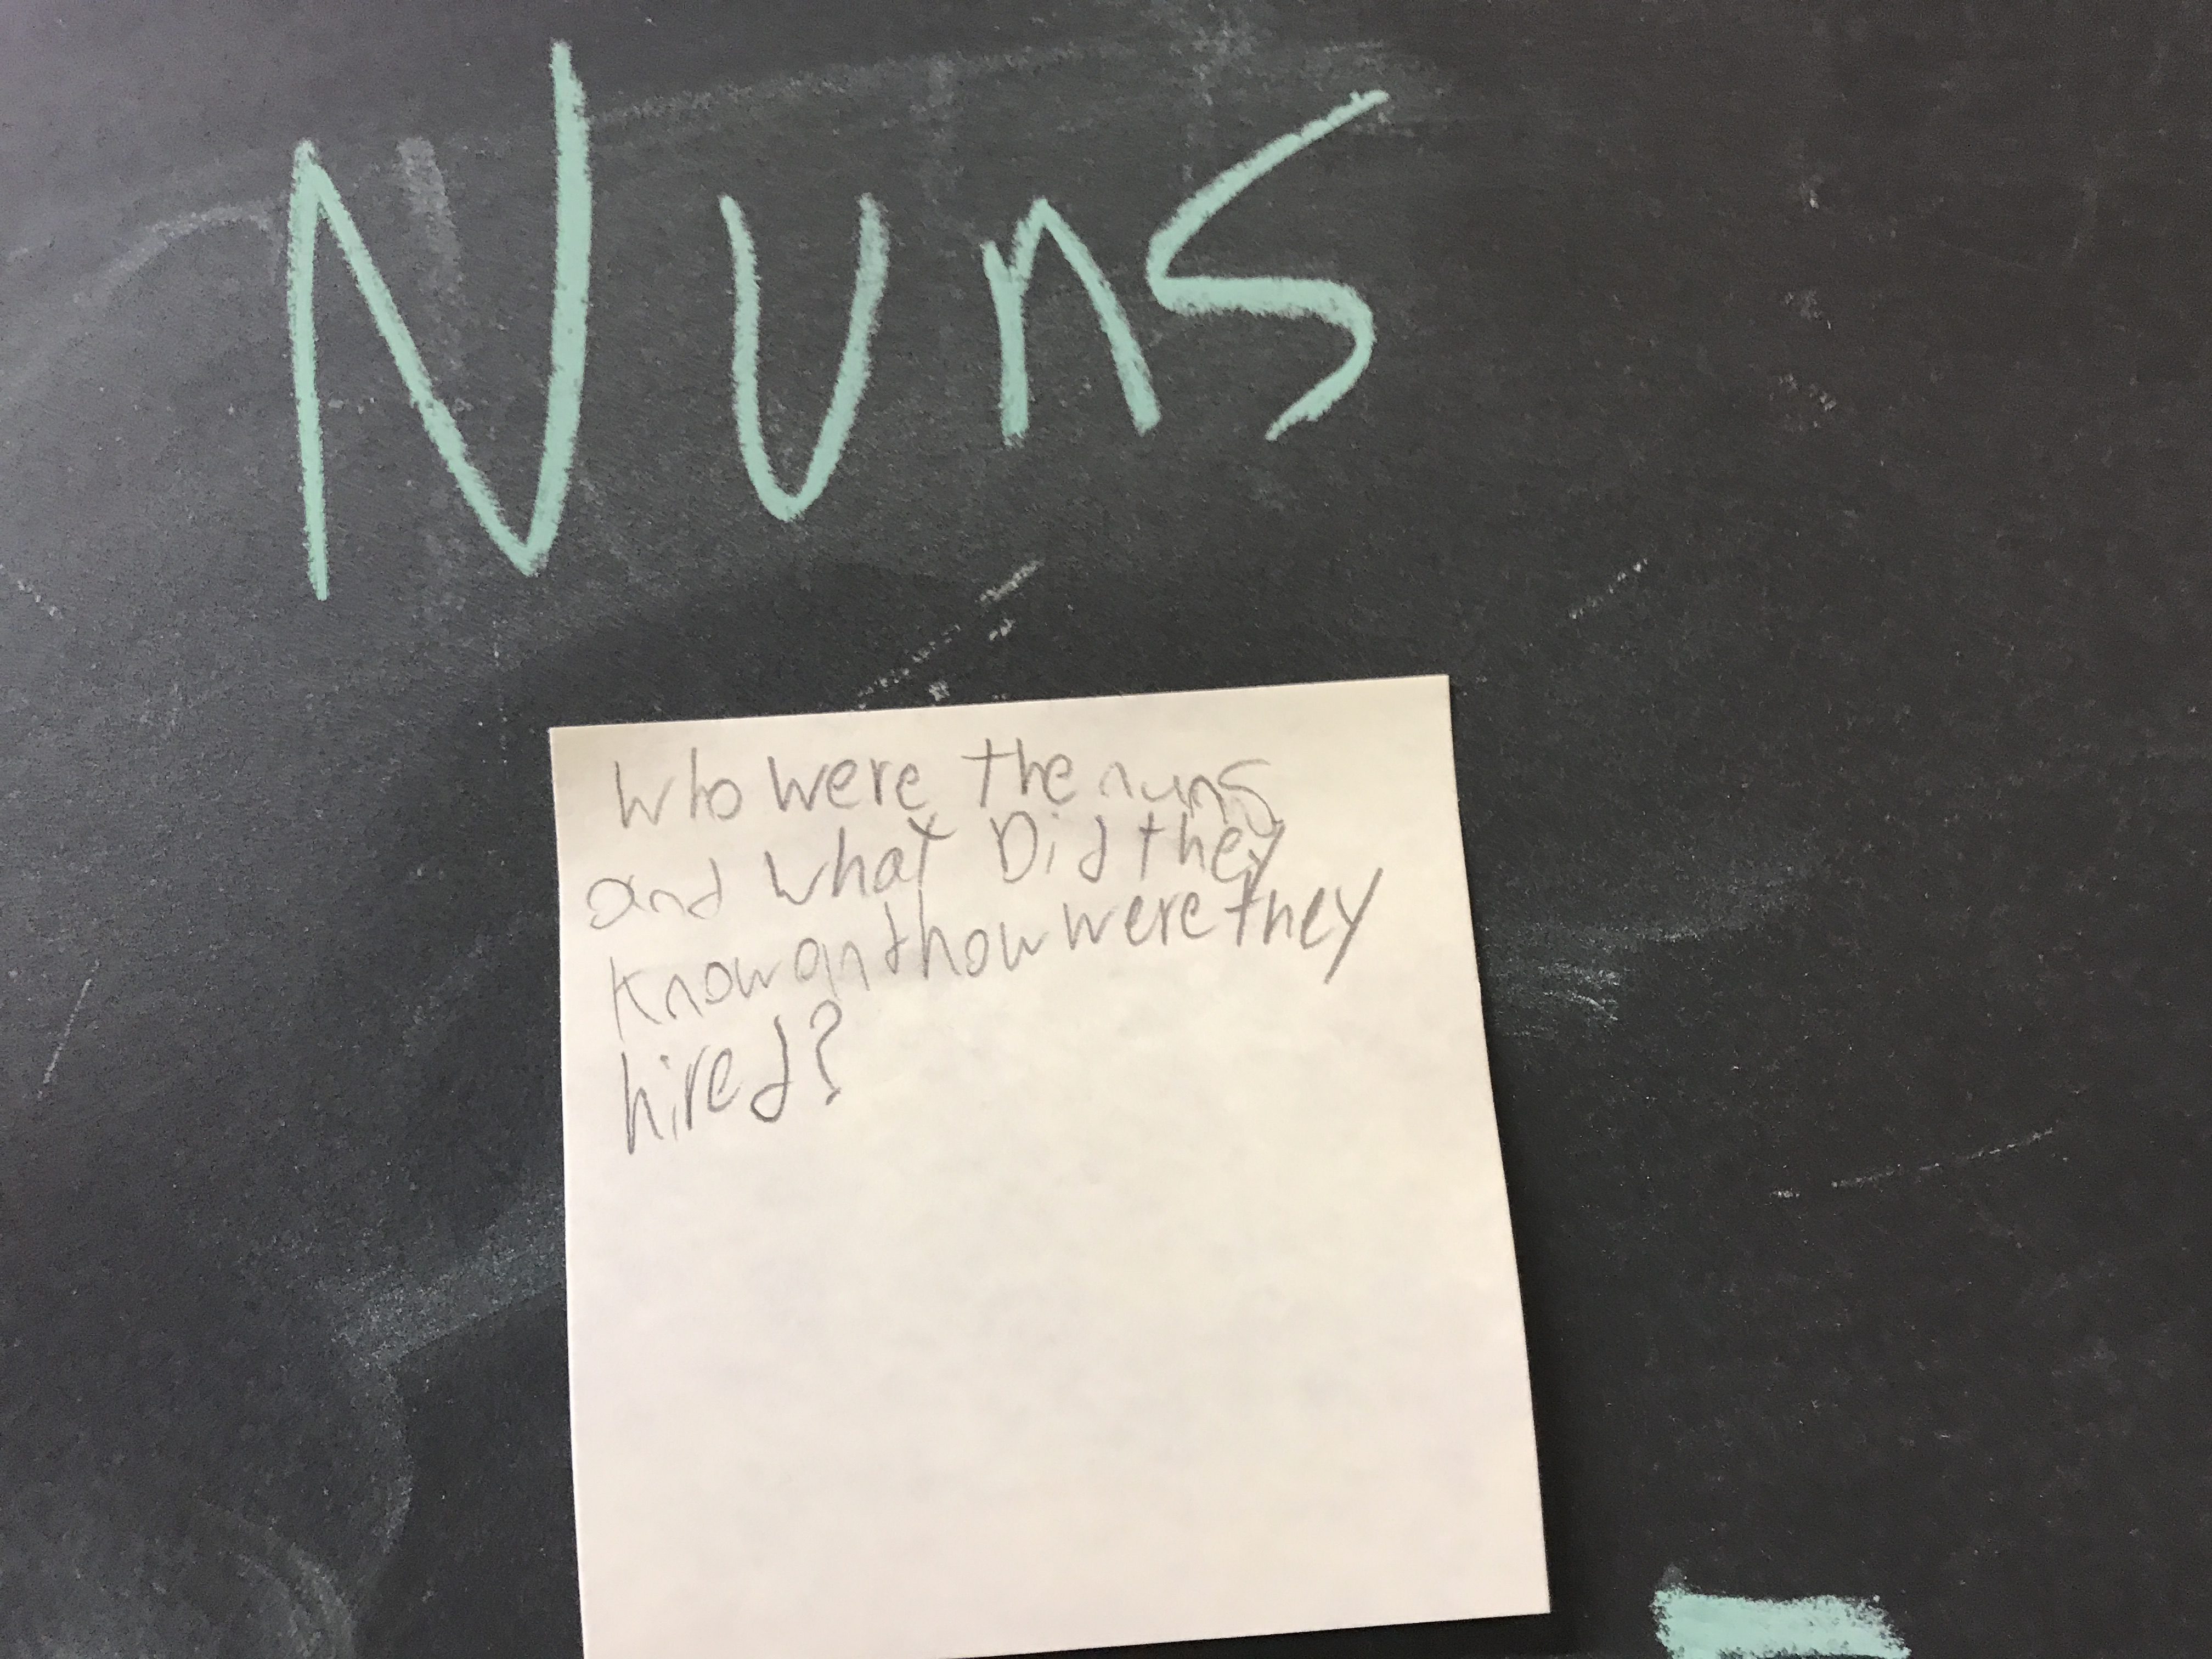 Nuns
Who were the nuns
and what Did they
Know anthow were they
hired?